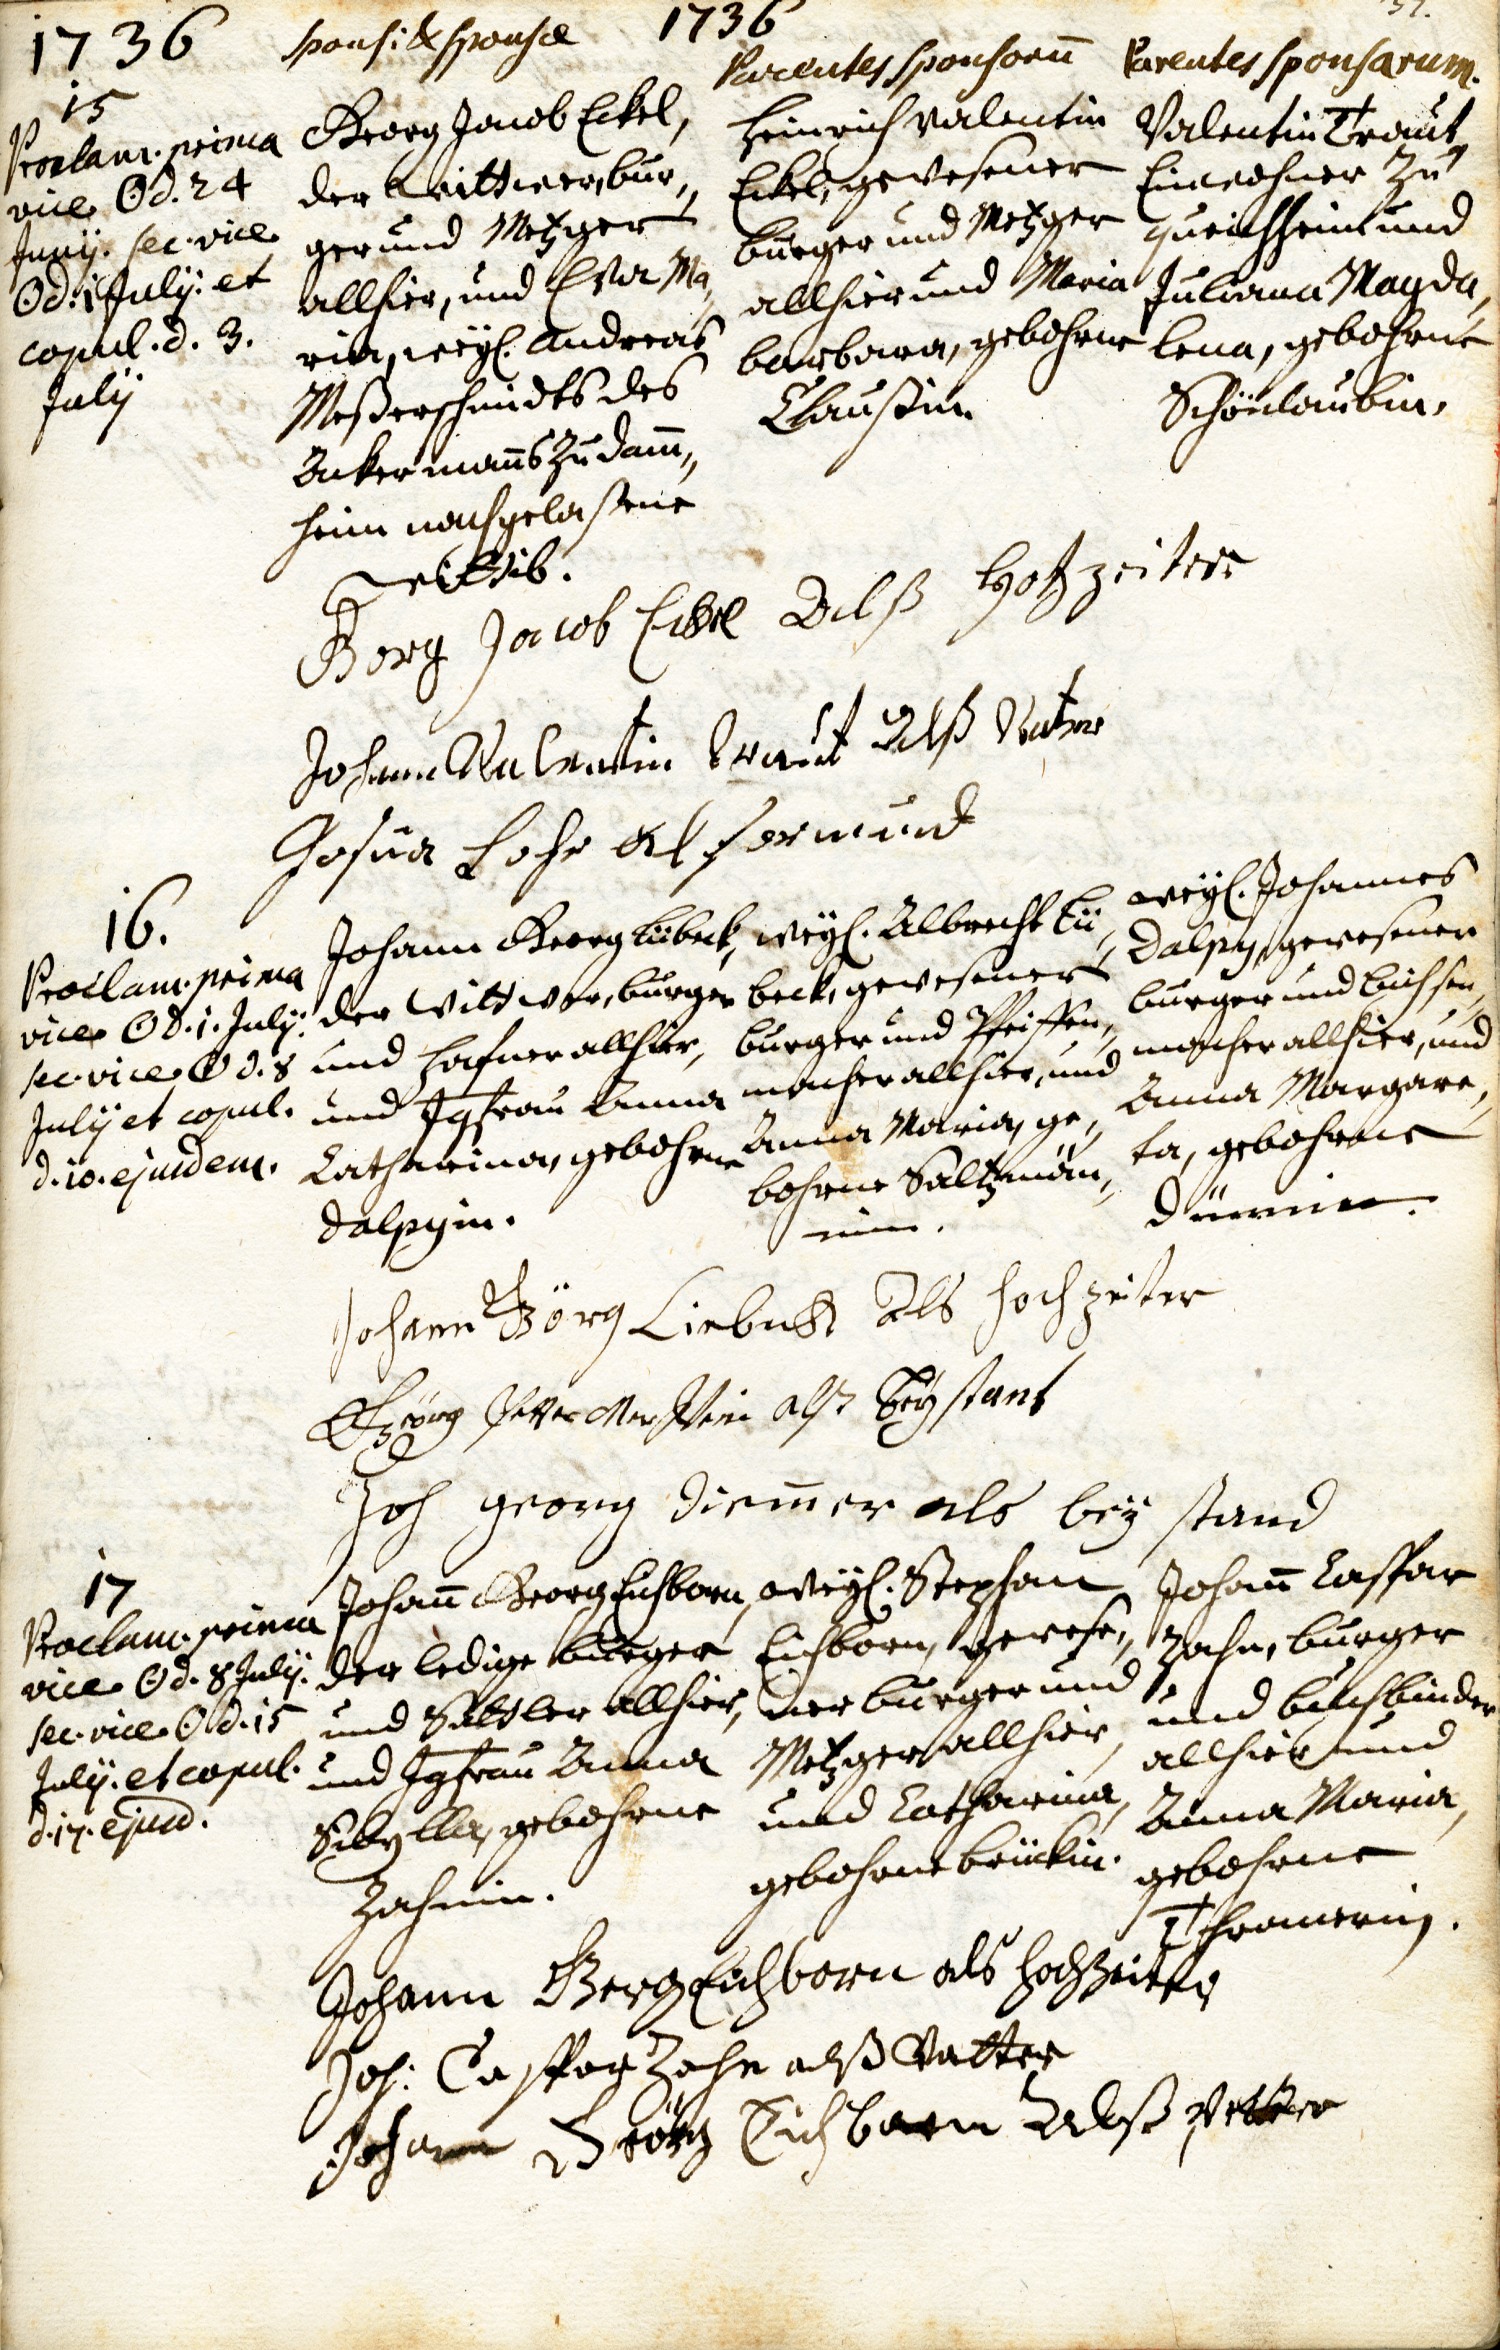 1736
sponsi & sponsæ
1736
37.
Parentes sponsorum̄
Parentes sponsarum.
15
Proclam. prima
vice ʘ d. 24
Junij. sec. vice
ʘ d. 1 July. et
copul. d. 3.
July
Georg Jacob Eckel,
der Wittwer, bur„
ger und Metzger
allhier, und Eva Ma„
ria, weyl. Andreas
Meßerschmidts des
Ackermanns zu Dam̄„
heim nachgelaßene
Wittib.
Heinrich Valentin
Eckel, gewesener
burger und Metzger
allhier und Maria
barbara, gebohrne
Claußin
Valentin Traut,
Einwohner zu
Queichheim und
Juliana Magda„
lena, gebohrne
Schönlaubin.
Georg Jacob Eckel Alß Hochzeiter
Johann Valentin Traut Alß Vatter
Josua Lohr als formund
16.
Proclam. prima
vice ʘ d. 1. July.
sec. vice ʘ d. 8
July et copul.
d. 10. ejusdem.
Johann Georg Lübeck,
der Wittwer, burger
und Hafner allhier,
und Jgfrau Anna
Catharina, gebohrne
Dalpyin.
weyl. Albrecht Lü„
beck, gewesener
burger und Pfeiffen„
macher allhier, und
Anna Maria, ge„
bohrne Saltzmän„
nin.
weyl. Johannes
Dalpy, gewesener
burger und büchsen„
macher allhier, und
Anna Margare„
ta, gebohrne
Dürrin.
Johann Görg Liebeck Als Hochzeiter
Georg alß Beystant
Joh Georg Diem̄er als bey stand
17
Proclam. prima
vice ʘ d. 8 July.
sec. vice ʘ d. 15
July. et copul.
d. 17. ejusd.
Johan̄ Georg Eichborn,
der ledige burger
und Sattler allhier,
und Jgfrau Anna
Sibylla, gebohrne
Zahnin.
weyl. Stephan
Eichborn, gewese„
ner burger und
Metzger allhier,
und Catharina,
gebohrne brückin.
Johan̄ Caspar
Zahn, burger
und buchbinder
allhier und
Anna Maria,
gebohrne
Johann Georg Eichborn als Hochzeiter
Joh: Caspar Zahn alß Vatter
Johann Geörg Eichborn Alß Vetter